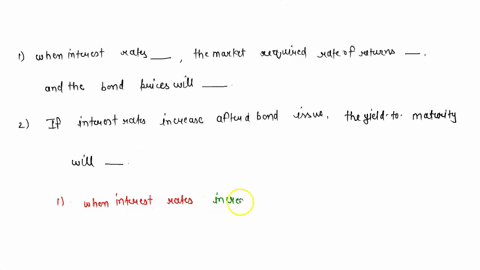 1) when interest rates ___, the market required rate of returns __.
and the bond prices will ___.
2) If interest rates increase after a bond issue, the yield-to-maturity
will ___.
1) when interest rates incre